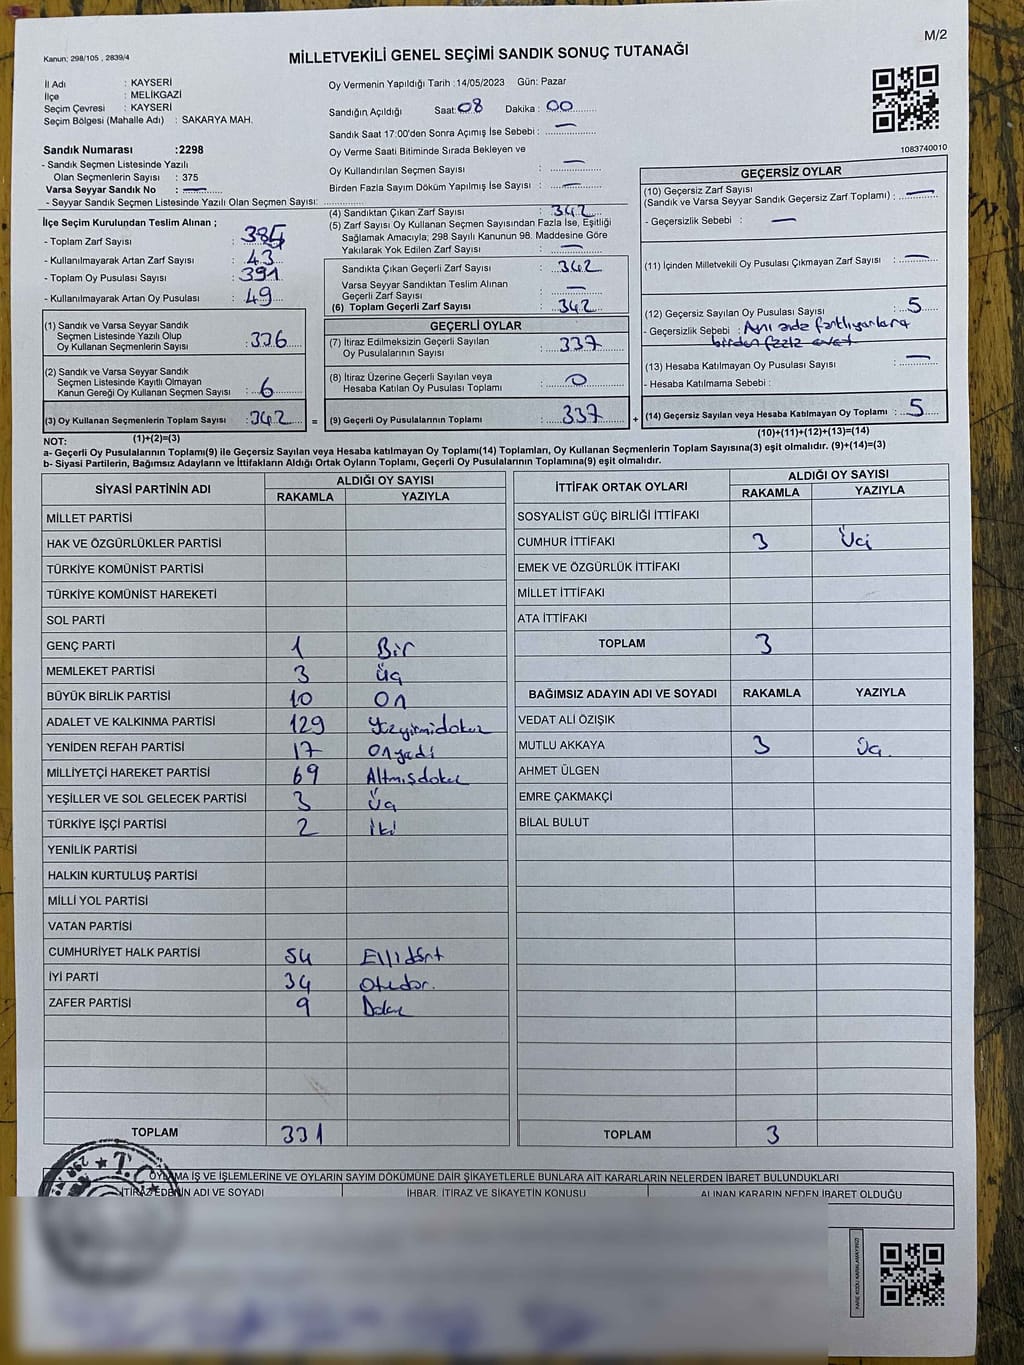 M/2
Kanun; 298/105 , 2839/4
MİLLETVEKİLİ GENEL SEÇİMİ SANDIK SONUÇ TUTANAĞI
İl Adı : KAYSERİ
İlçe : MELİKGAZİ
Seçim Çevresi : KAYSERİ
Seçim Bölgesi (Mahalle Adı) : SAKARYA MAH.
Sandık Numarası :2298
- Sandık Seçmen Listesinde Yazılı
Olan Seçmenlerin Sayısı : 375
Varsa Seyyar Sandık No : —
- Seyyar Sandık Seçmen Listesinde Yazılı Olan Seçmen Sayısı:
Oy Vermenin Yapıldığı Tarih :14/05/2023 Gün: Pazar
Sandığın Açıldığı Saat: 08 Dakika : 00
Sandık Saat 17:00'den Sonra Açımış İse Sebebi : —
Oy Verme Saati Bitiminde Sırada Bekleyen ve
Oy Kullandırılan Seçmen Sayısı : —
Birden Fazla Sayım Döküm Yapılmış İse Sayısı : —
1083740010
İlçe Seçim Kurulundan Teslim Alınan ;
- Toplam Zarf Sayısı : 385
- Kullanılmayarak Artan Zarf Sayısı : 43
- Toplam Oy Pusulası Sayısı : 391
- Kullanılmayarak Artan Oy Pusulası : 49
(1) Sandık ve Varsa Seyyar Sandık
Seçmen Listesinde Yazılı Olup
Oy Kullanan Seçmenlerin Sayısı : 336
(2) Sandık ve Varsa Seyyar Sandık
Seçmen Listesinde Kayıtlı Olmayan
Kanun Gereği Oy Kullanan Seçmen Sayısı : 6
(3) Oy Kullanan Seçmenlerin Toplam Sayısı : 342 =
(1)+(2)=(3)
(4) Sandıktan Çıkan Zarf Sayısı : 342
(5) Zarf Sayısı Oy Kullanan Seçmen Sayısından Fazla İse, Eşitliği
Sağlamak Amacıyla; 298 Sayılı Kanunun 98. Maddesine Göre
Yakılarak Yok Edilen Zarf Sayısı : —
Sandıkta Çıkan Geçerli Zarf Sayısı : 342
Varsa Seyyar Sandıktan Teslim Alınan
Geçerli Zarf Sayısı : —
(6) Toplam Geçerli Zarf Sayısı : 342
GEÇERLİ OYLAR
(7) İtiraz Edilmeksizin Geçerli Sayılan
Oy Pusulalarının Sayısı : 337
(8) İtiraz Üzerine Geçerli Sayılan veya
Hesaba Katılan Oy Pusulası Toplamı : 0
(9) Geçerli Oy Pusulalarının Toplamı : 337 +
GEÇERSİZ OYLAR
(10) Geçersiz Zarf Sayısı
(Sandık ve Varsa Seyyar Sandık Geçersiz Zarf Toplamı) : —
- Geçersizlik Sebebi : —
(11) İçinden Milletvekili Oy Pusulası Çıkmayan Zarf Sayısı : —
(12) Geçersiz Sayılan Oy Pusulası Sayısı : 5
- Geçersizlik Sebebi : Aynı anda
(13) Hesaba Katılmayan Oy Pusulası Sayısı : —
- Hesaba Katılmama Sebebi :
(14) Geçersiz Sayılan veya Hesaba Katılmayan Oy Toplamı : 5
(10)+(11)+(12)+(13)=(14)
NOT:
a- Geçerli Oy Pusulalarının Toplamı(9) ile Geçersiz Sayılan veya Hesaba katılmayan Oy Toplamı(14) Toplamları, Oy Kullanan Seçmenlerin Toplam Sayısına(3) eşit olmalıdır. (9)+(14)=(3)
b- Siyasi Partilerin, Bağımsız Adayların ve İttifakların Aldığı Ortak Oyların Toplamı, Geçerli Oy Pusulalarının Toplamına(9) eşit olmalıdır.
SİYASİ PARTİNİN ADI ALDIĞI OY SAYISI
RAKAMLA YAZIYLA
MİLLET PARTİSİ
HAK VE ÖZGÜRLÜKLER PARTİSİ
TÜRKİYE KOMÜNİST PARTİSİ
TÜRKİYE KOMÜNİST HAREKETİ
SOL PARTİ
GENÇ PARTİ 1 Bir
MEMLEKET PARTİSİ 3 Üç
BÜYÜK BİRLİK PARTİSİ 10 On
ADALET VE KALKINMA PARTİSİ 129 Yüzyirmidokuz
YENİDEN REFAH PARTİSİ 17 Onyedi
MİLLİYETÇİ HAREKET PARTİSİ 69 Altmışdokuz
YEŞİLLER VE SOL GELECEK PARTİSİ 3 Üç
TÜRKİYE İŞÇİ PARTİSİ 2 İki
YENİLİK PARTİSİ
HALKIN KURTULUŞ PARTİSİ
MİLLİ YOL PARTİSİ
VATAN PARTİSİ
CUMHURİYET HALK PARTİSİ 54 Ellidört
İYİ PARTİ 34
ZAFER PARTİSİ 9 Dokuz
TOPLAM 331
İTTİFAK ORTAK OYLARI ALDIĞI OY SAYISI
RAKAMLA YAZIYLA
SOSYALİST GÜÇ BİRLİĞİ İTTİFAKI
CUMHUR İTTİFAKI 3 Üç
EMEK VE ÖZGÜRLÜK İTTİFAKI
MİLLET İTTİFAKI
ATA İTTİFAKI
TOPLAM 3
BAĞIMSIZ ADAYIN ADI VE SOYADI RAKAMLA YAZIYLA
VEDAT ALİ ÖZIŞIK
MUTLU AKKAYA 3 Üç.
AHMET ÜLGEN
EMRE ÇAKMAKÇİ
BİLAL BULUT
TOPLAM 3
OYLAMA İŞ VE İŞLEMLERİNE VE OYLARIN SAYIM DÖKÜMÜNE DAİR ŞİKAYETLERLE BUNLARA AİT KARARLARIN NELERDEN İBARET BULUNDUKLARI
İTİRAZ EDENİN ADI VE SOYADI İHBAR, İTİRAZ VE ŞİKAYETİN KONUSU ALINAN KARARIN NEDEN İBARET OLDUĞU
T.C
KARE KODU KARALAMAYINIZ!